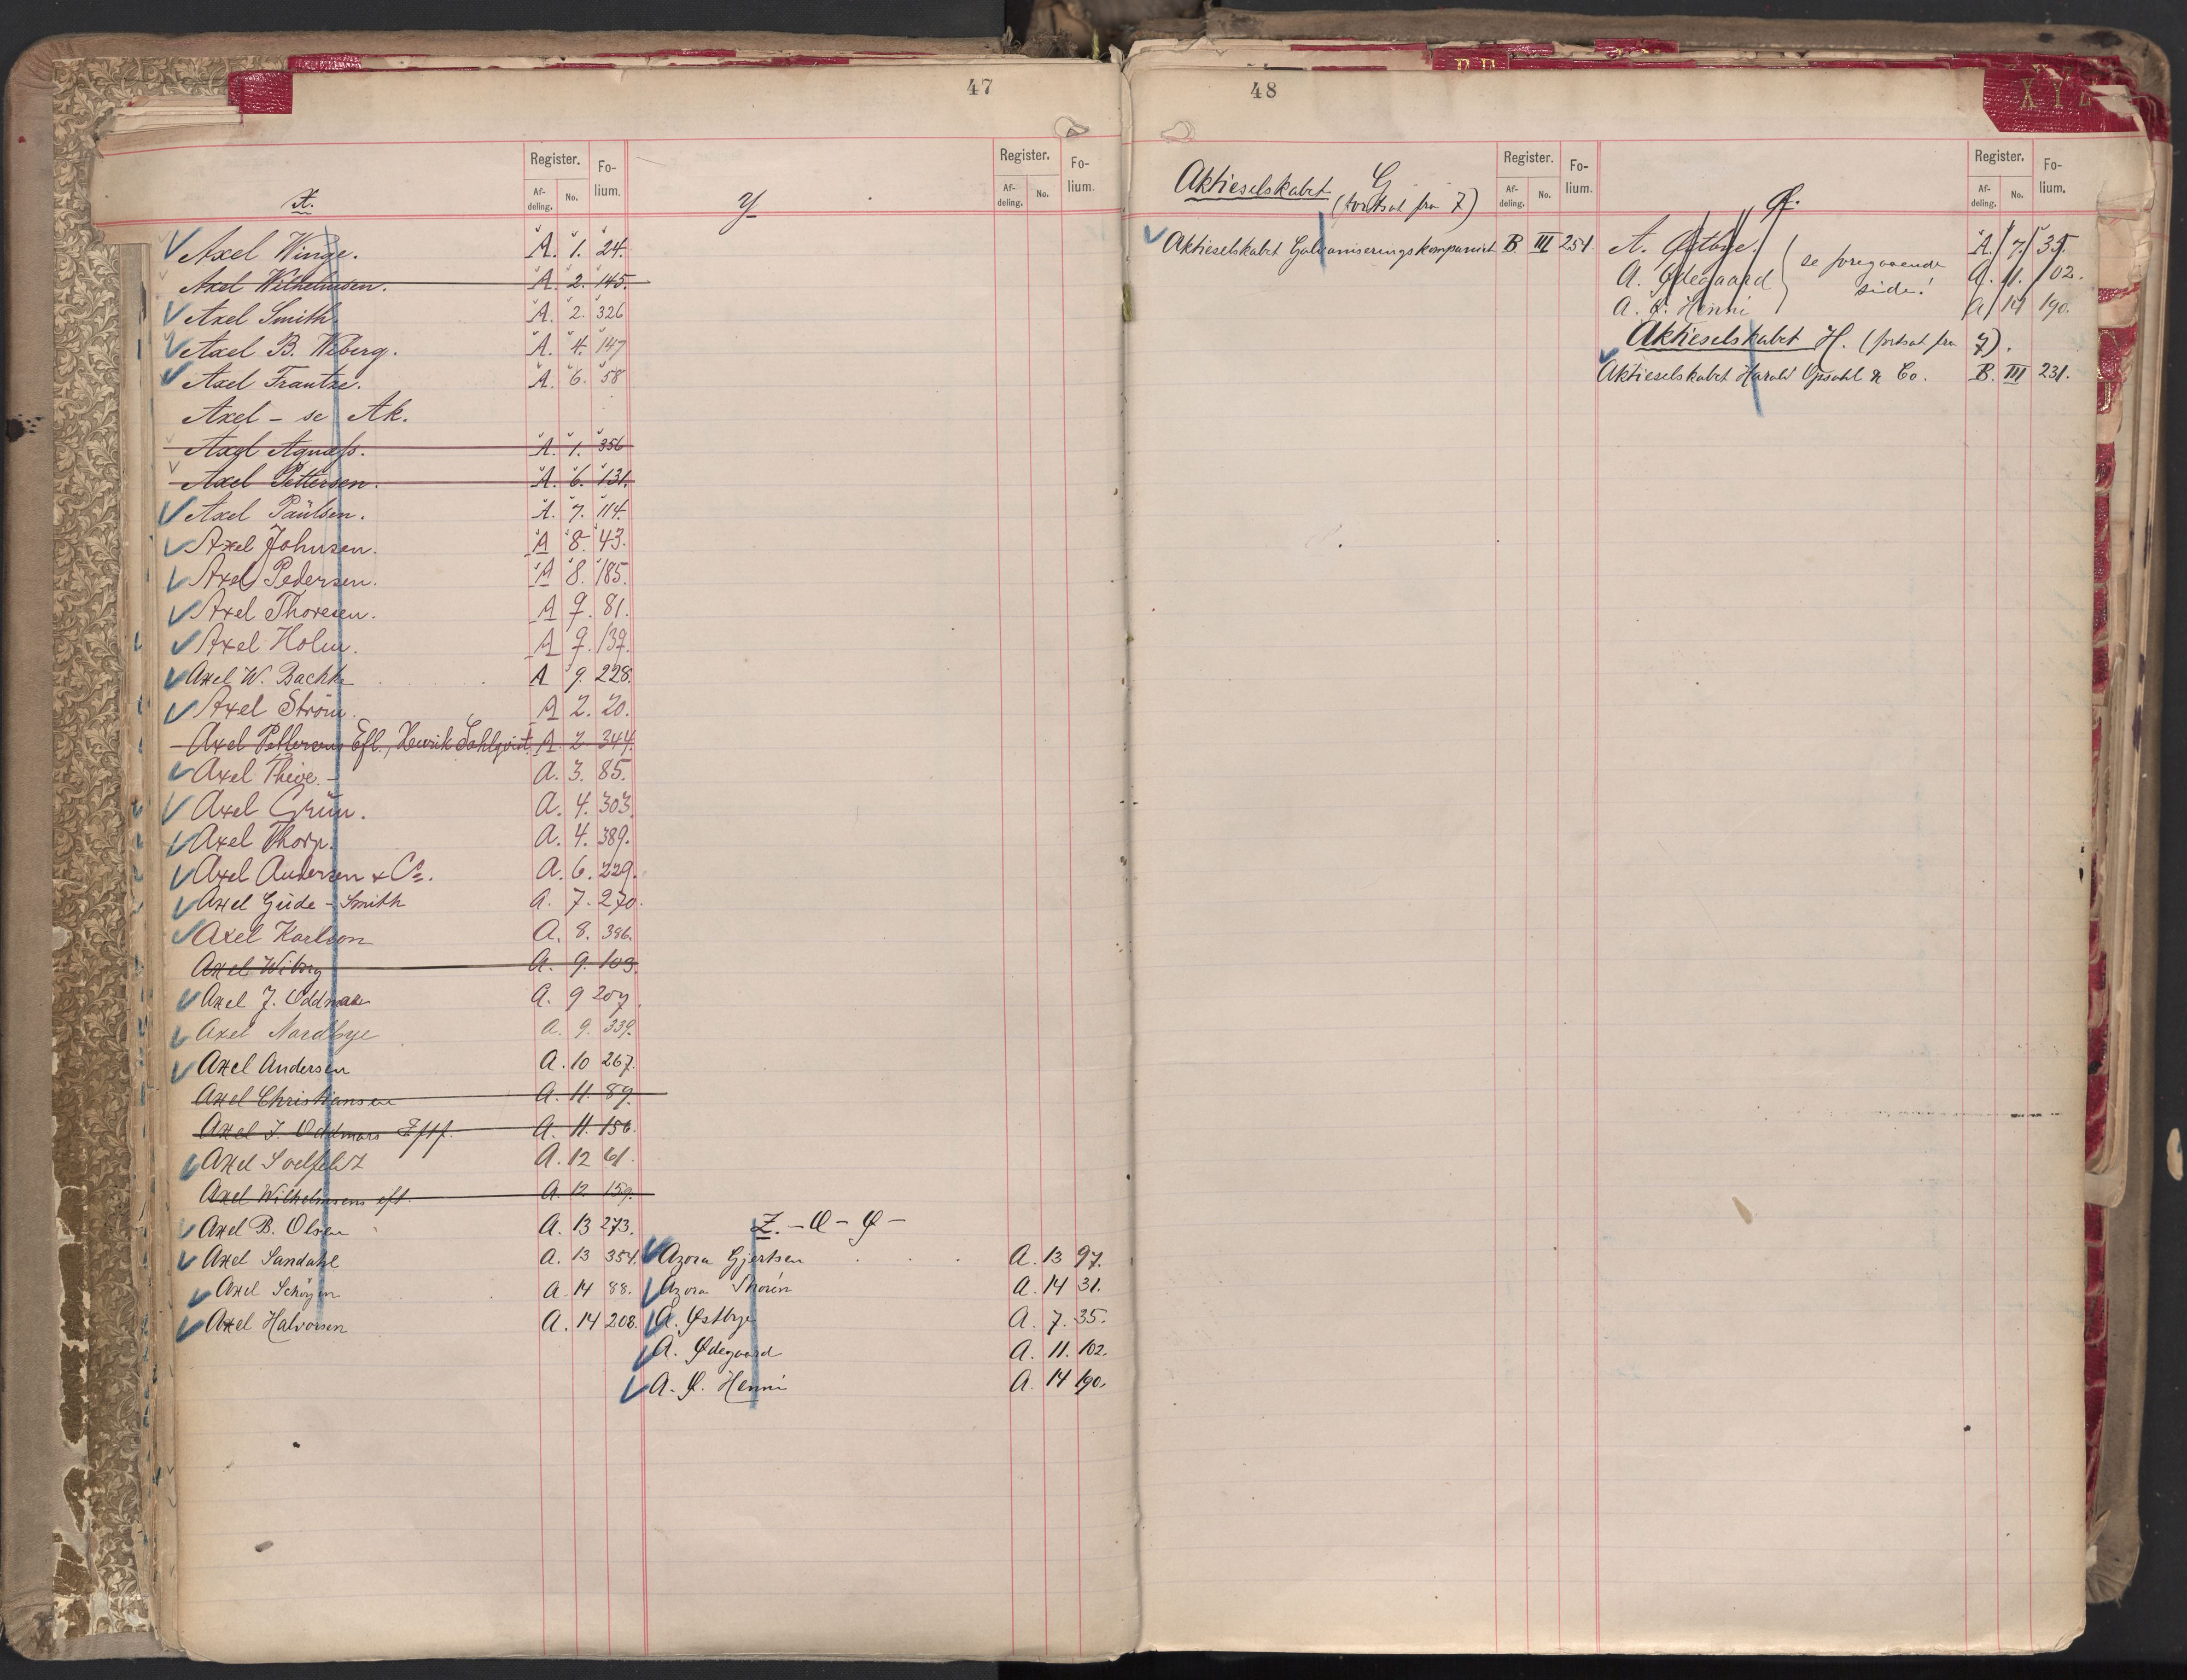 47
Register. Fo-
lium.
Af-
deling. No.
X.
Axel Winge. A. 1. 24.
Axel Wilhelmsen. A. 2. 145.
Axel Smith. A. 2. 326
Axel B. Wiberg. A. 4. 147
Axel Frantze. A. 6. 58
Axel - se Ak.
Axel Agnæss. A. 1. 356
Axel Pettersen. A. 6. 131.
Axel Paulsen. A. 7. 114.
Axel Johnsen. A 8. 43.
Axel Pedersen. A 8. 185.
Axel Thoresen. A 9. 81.
Axel Holm. A 9. 139.
Axel W. Bachke A 9. 228.
Axel Strøm. A 2. 20.
Axel Pettersens Efl., Henrik Dahlqvist. A. 2. 344.
Axel Theve. - A. 3. 85.
Axel Grün. A. 4. 303.
Axel Thorp. A. 4. 389.
Axel Andersen & Co. A. 6. 229.
Axel Gude - Smith A. 7. 270.
Axel Karlson A. 8. 386.
Axel Wiborg A. 9. 103.
Axel J. Oddmar A. 9 207.
Axel Nordbye A. 9. 339.
Axel Andersen A. 10 267.
Axel Christiansen A. 11. 89.
Axel J. Oddmars Eftf. A. 11. 156.
Axel A. 12 61.
Axel Wilhelmsens eft. A. 12 159.
Axel B. Olsen A. 13 273.
Axel Sandahl A. 13 354.
Axel Schøyen A. 14 88.
Axel Halvorsen A. 14 208.
Register. Fo-
lium.
Af-
deling. No.
Y
Z. - Æ - Ø -
Azora Gjertsen A. 13 97.
Azora Thorén A. 14 31.
A. Østbye A. 7. 35.
A. Ødegaard A. 11. 102.
A. Ø. Henni A. 14 190.
48
Register. Fo-
lium.
Af-
deling. No.
Aktieselskabet G
(fortsat fra 7)
Aktieselskabet Galvaniseringskompaniet B III 251
Register. Fo-
lium.
Af-
deling. No.
Ø.
A. Østbye. A. 7. 35.
A. Ødegaard A. 11. 102.
A. Ø. Henni A 14 190.
se foregaaende
side!
Aktieselskabet H. (fortsat fra 7).
Aktieselskabet Harald Opsahl & Co. B. III 231.
XYZ